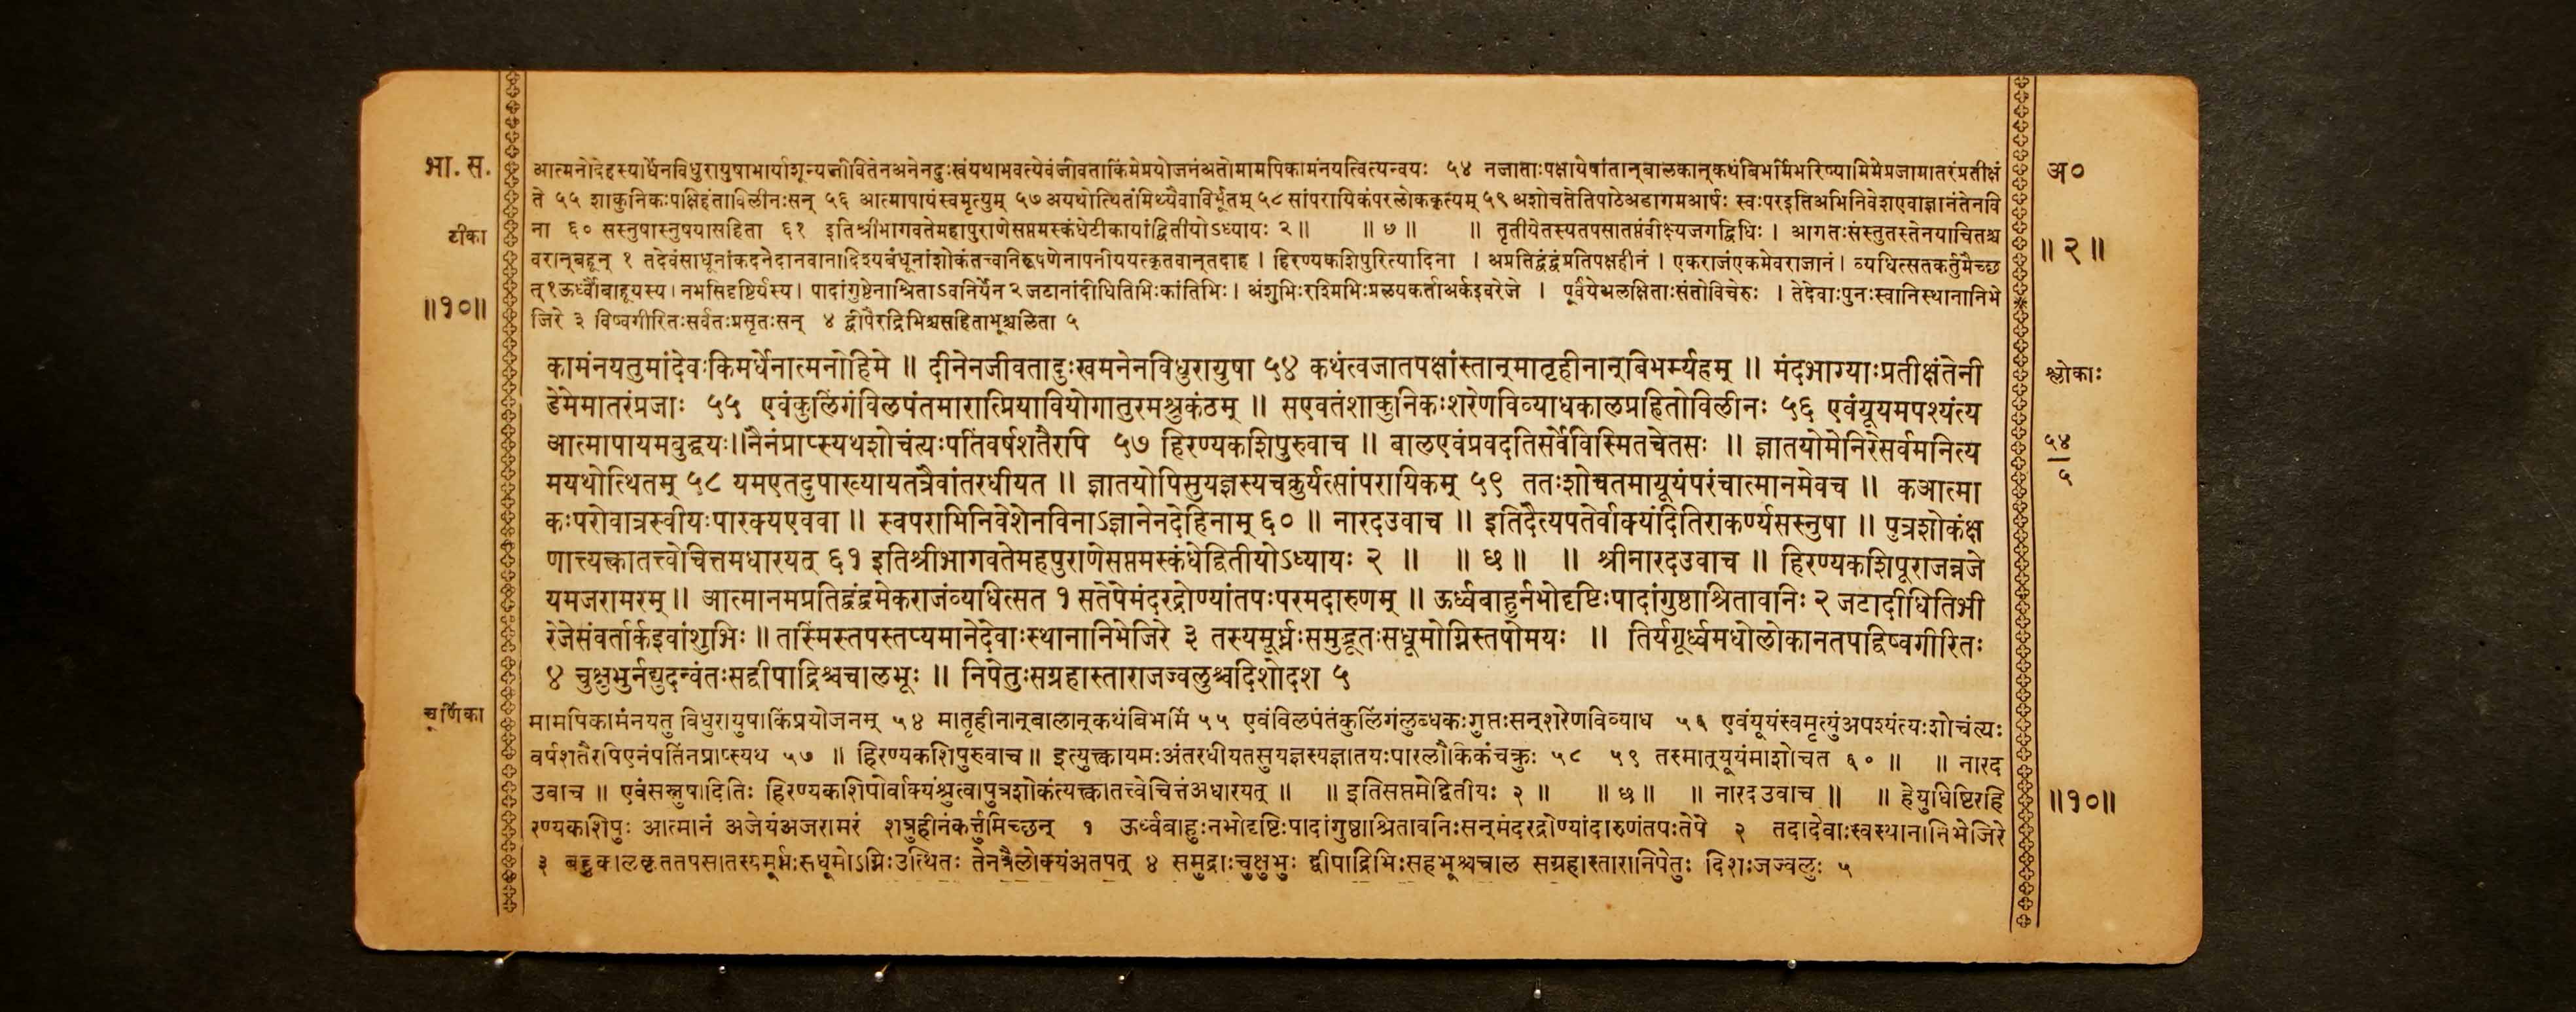 भा. स.
टीका
॥१०॥
चूर्णिका
आत्मनोदेहस्यार्धेनविधुरायुषाभार्याशून्यजीवितेनअनेनदुःखंयथाभवत्येवंजीवताकिंमेप्रयोजनंअतोमामपिकामंनयत्वित्यन्वयः ५४ नजाताःपक्षायेषांतान्बालकान्कथंबिभर्मिभरिष्यामिमेप्रजामातरंप्रतीक्षं
ते ५५ शाकुनिकःपक्षिहंताविलीनःसन् ५६ आत्मापायंस्वमृत्युम् ५७ अयथोत्थितंमिथ्यैवाविर्भूतम् ५८ सांपरायिकंपरलोककृत्यम् ५९ अशोचतेतिपाठेअडागमआर्षः स्वःपरइतिअभिनिवेशएवाज्ञानंतेनवि
ना ६० सस्नुषास्नुषयासहिता ६१ इतिश्रीभागवतेमहापुराणेसप्तमस्कंधेटीकायांद्वितीयोऽध्यायः २॥ ॥ ७ ॥ ॥ तृतीयेतस्यतपसातप्तंवीक्ष्यजगद्विधिः । आगतःसंस्तुतस्तेनयाचितश्च
वरान्बहून् १ तदेवंसाधूनांकदनेदानवानादिश्यबंधूनांशोकंतत्त्वनिरूपणेनापनीययत्कृतवान्तदाह । हिरण्यकशिपुरित्यादिना । अप्रतिद्वंद्वंप्रतिपक्षहीनं । एकराजंएकमेवराजानं । व्यधित्सतकर्तुमैच्छ
त् १ऊर्ध्वौबाहूयस्य । नभसिदृष्टिर्यस्य । पादांगुष्ठेनाश्रिताऽवनिर्येन २ जटानांदीधितिभिःकांतिभिः । अंशुभिःरश्मिभिःप्रलयकर्ताअर्कइवरेजे । पूर्वंयेअलक्षिताःसंतोविचेरुः । तेदेवाःपुनःस्वानिस्थानानिभे
जिरे ३ विष्वगीरितःसर्वतःप्रसृतःसन् ४ द्वीपैरद्रिभिश्चसहिताभूश्चलिता ५
कामंनयतुमांदेवःकिमर्धेनात्मनोहिमे ॥ दीनेनजीवतादुःखमनेनविधुरायुषा ५४ कथंत्वजातपक्षांस्तान्मातृहीनान्बिभर्म्यहम् ॥ मंदभाग्याःप्रतीक्षंतेनी
डेमेमातरंप्रजाः ५५ एवंकुलिंगंविलपंतमारात्प्रियावियोगातुरमश्रुकंठम् ॥ सएवतंशाकुनिकःशरेणविव्याधकालप्रहितोविलीनः ५६ एवंयूयमपश्यंत्य
आत्मापायमबुद्धयः॥नैनंप्राप्स्यथशोचंत्यःपतिंवर्षशतैरपि ५७ हिरण्यकशिपुरुवाच ॥ बालएवंप्रवदतिसर्वेविस्मितचेतसः ॥ ज्ञातयोमेनिरेसर्वमनित्य
मयथोत्थितम् ५८ यमएतदुपाख्यायतत्रैवांतरधीयत ॥ ज्ञातयोपिसुयज्ञस्यचक्रुर्यत्सांपरायिकम् ५९ ततःशोचतमायूयंपरंचात्मानमेवच ॥ कआत्मा
कःपरोवात्रस्वीयःपारक्यएववा ॥ स्वपराभिनिवेशेनविनाऽज्ञानेनदेहिनाम् ६० ॥ नारदउवाच ॥ इतिदैत्यपतेर्वाक्यंदितिराकर्ण्यसस्नुषा ॥ पुत्रशोकंक्ष
णात्त्यक्त्वातत्त्वेचित्तमधारयत् ६१ इतिश्रीभागवतेमहपुराणेसप्तमस्कंधेद्वितीयोऽध्यायः २ ॥ ॥ छ ॥ ॥ श्रीनारदउवाच ॥ हिरण्यकशिपूराजन्नजे
यमजरामरम् ॥ आत्मानमप्रतिद्वंद्वमेकराजंव्यधित्सत १ सतेपेमंदरद्रोण्यांतपःपरमदारुणम् ॥ ऊर्ध्वबाहुर्नभोदृष्टिःपादांगुष्ठाश्रितावनिः २ जटादीधितिभी
रेजेसंवर्तार्कइवांशुभिः ॥ तस्मिंस्तपस्तप्यमानेदेवाःस्थानानिभेजिरे ३ तस्यमूर्ध्नःसमुद्भूतःसधूमोग्निस्तपोमयः ॥ तिर्यगूर्ध्वमधोलोकानतपद्विष्वगीरितः
४ चुक्षुभुर्नद्युदन्वंतःसद्वीपाद्रिश्चचालभूः ॥ निपेतुःसग्रहास्ताराजज्वलुश्चदिशोदश ५
मामपिकामंनयतु विधुरायुषाकिंप्रयोजनम् ५४ मातृहीनान्बालान्कथंबिभर्मि ५५ एवंविलपंतंकुलिंगंलुब्धकःगुप्तःसन्शरेणविव्याध ५६ एवंयूयंस्वमृत्युंअपश्यंत्यःशोचंत्यः
वर्षशतैरपिएनंपतिंनप्राप्स्यथ ५७ ॥ हिरण्यकशिपुरुवाच ॥ इत्युक्त्वायमःअंतरधीयतसुयज्ञस्यज्ञातयःपारलौकिकंचक्रुः ५८ ५९ तस्मात्यूयंमाशोचत ६० ॥ ॥ नारद
उवाच ॥ एवंसस्नुषादितिः हिरण्यकशिपोर्वाक्यंश्रुत्वापुत्रशोकंत्यक्त्वातत्त्वेचित्तंअधारयत् ॥ ॥ इतिसप्तमेद्वितीयः २ ॥ ॥ छ ॥ ॥ नारदउवाच ॥ ॥ हेयुधिष्टिरहि
रण्यकशिपुः आत्मानं अजेयंअजरामरं शत्रुहीनंकर्त्तुमिच्छन् १ ऊर्ध्वबाहुःनभोदृष्टिःपादांगुष्ठाश्रितावनिःसन्मंदरद्रोण्यांदारुणंतपःतेपे २ तदादेवाःस्वस्थानानिभेजिरे
३ बहुकालकृततपसातस्यमूर्ध्नःसधूमोऽग्निःउत्थितः तेनत्रैलोक्यंअतपत् ४ समुद्राःचुक्षुभुः द्वीपाद्रिभिःसहभूश्चचाल सग्रहास्तारानिपेतुः दिशःजज्वलुः ५
अ०
॥ २ ॥
श्लोकाः
५४
५
॥१०॥